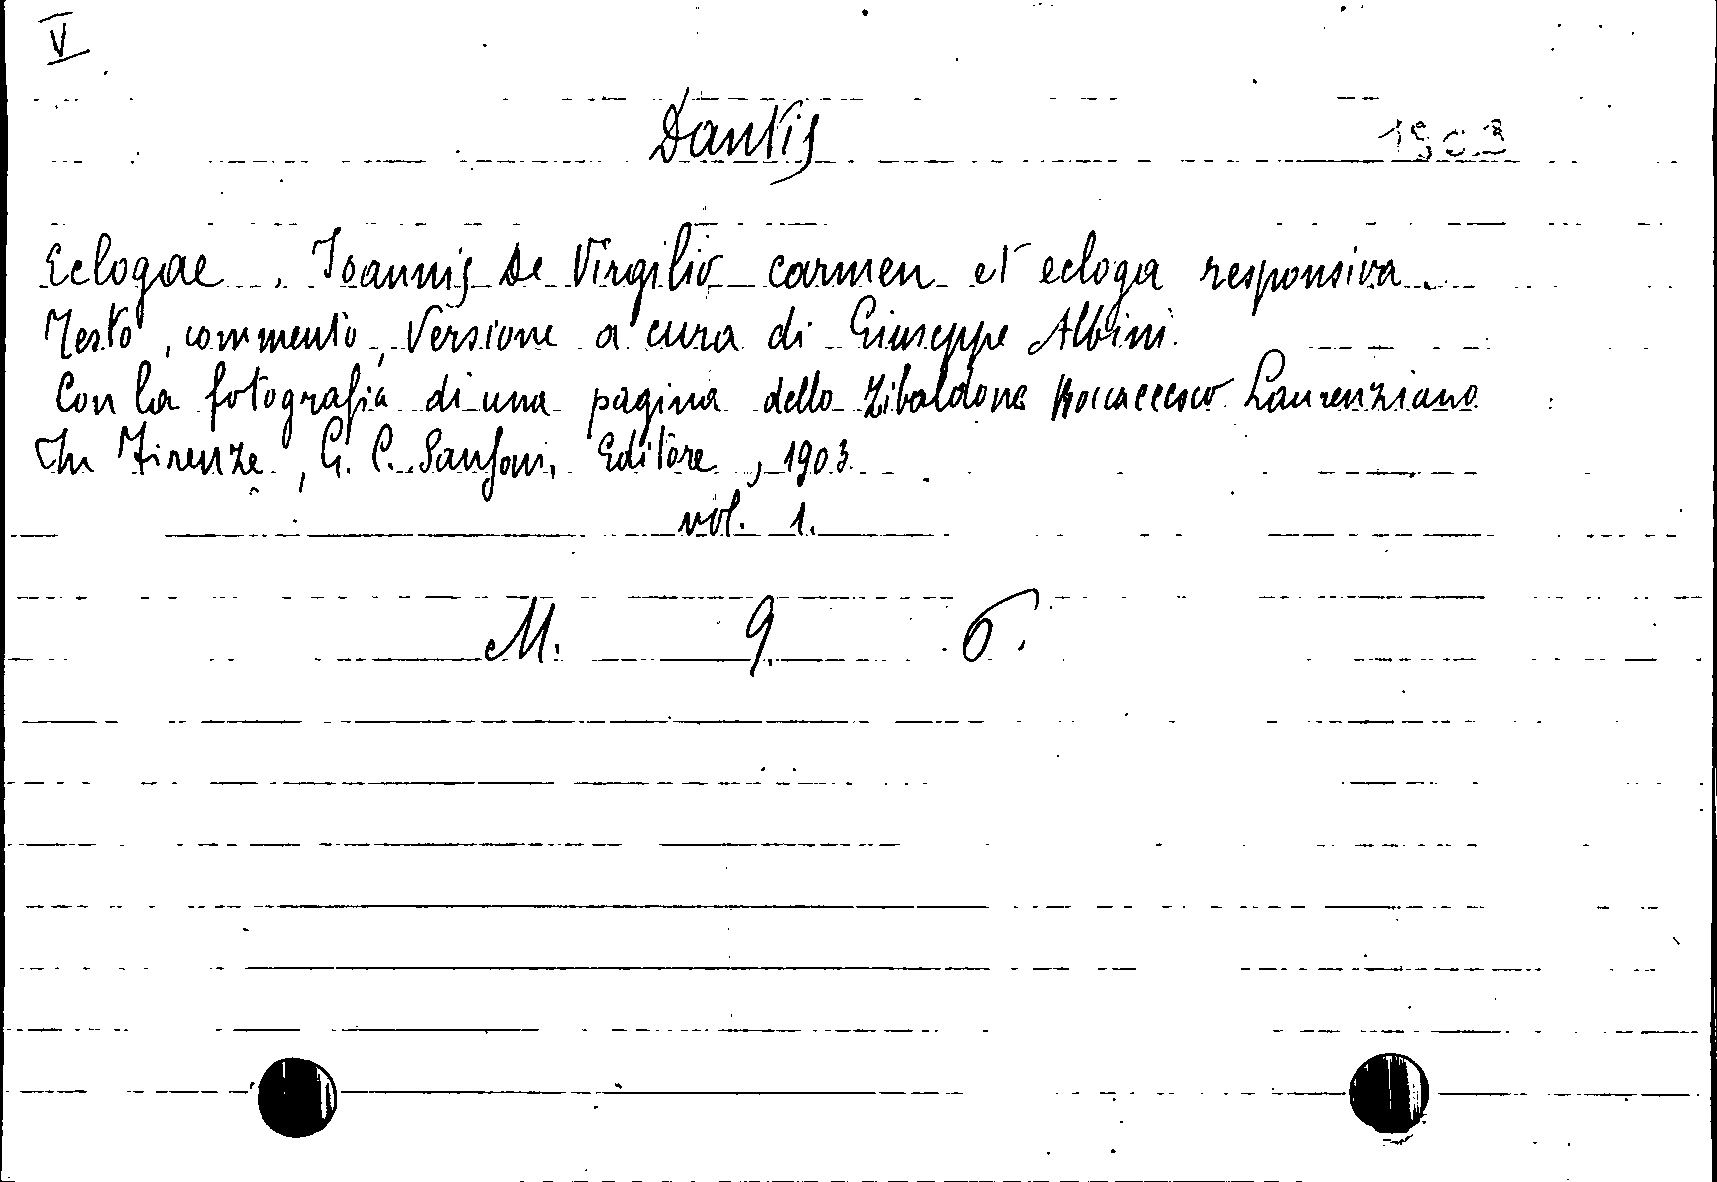 V
Dantis 1903
Eclogae. Ioannis De Virgilio carmen et ecloga responsiva.
Testo, commento, Versione a cura di Giuseppe Albini.
Con la fotografia di una pagina dello Zibaldone Boccaccesco Laurenziano
In Firenze, G. C. Sansoni, Editore, 1903
vol. 1.
M. 9. 6.